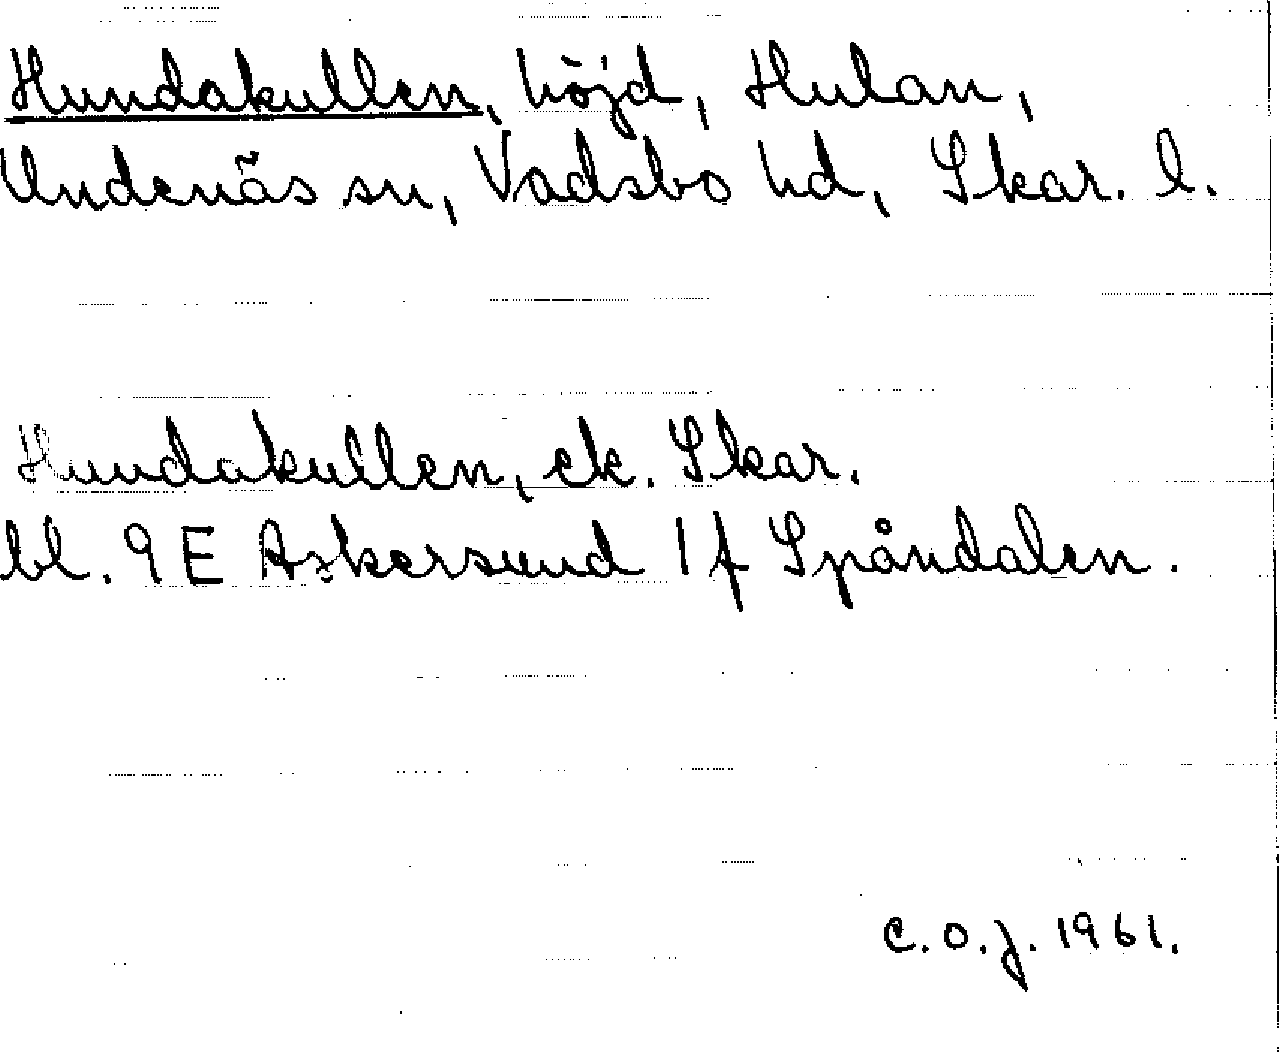 Hundakullen, höjd, Hulan,
Undenäs sn, Vadsbo hd, Skar. l.
Hundakullen, ek. Skar.
bl. 9E Askersund 1f Spåndalen.
C.O.J. 1961.